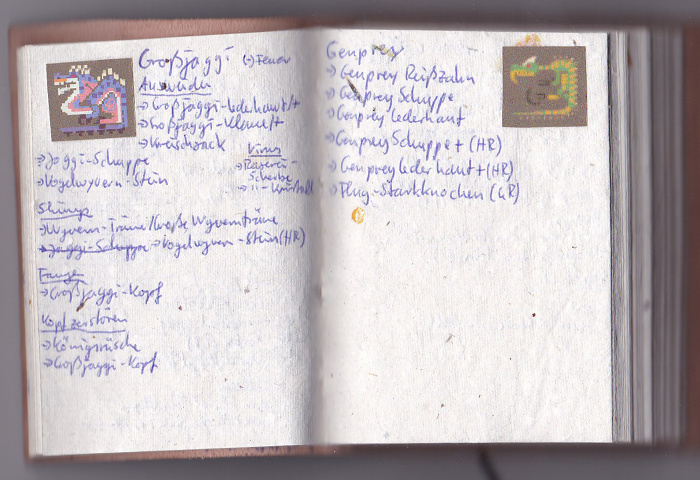 Großjaggi (-) Feuer
Ausweiden
→Großjaggi-Lederhaut/+
→Großjaggi-Klaue/+
→Kreischsack
→Jaggi-Schuppe
→Vogelwyvern-Stein
Virus
→Raserei-
Scherbe
→ " -Kristall
Shinys
→Wyvern-Träne/Große Wyvernträne
→Jaggi-Schuppe →Vogelwyvern-Stein(HR)
Fangen
→Großjaggi-Kopf
Kopf zerstören
→Königsrüsche
→Großjaggi-Kopf
Genprey
→Genprey Reißzahn
→Genprey Schuppe
→Genprey Lederhaut
→Genprey Schuppe+ (HR)
→Genprey Lederhaut+(HR)
→Flug-Starkknochen (GR)